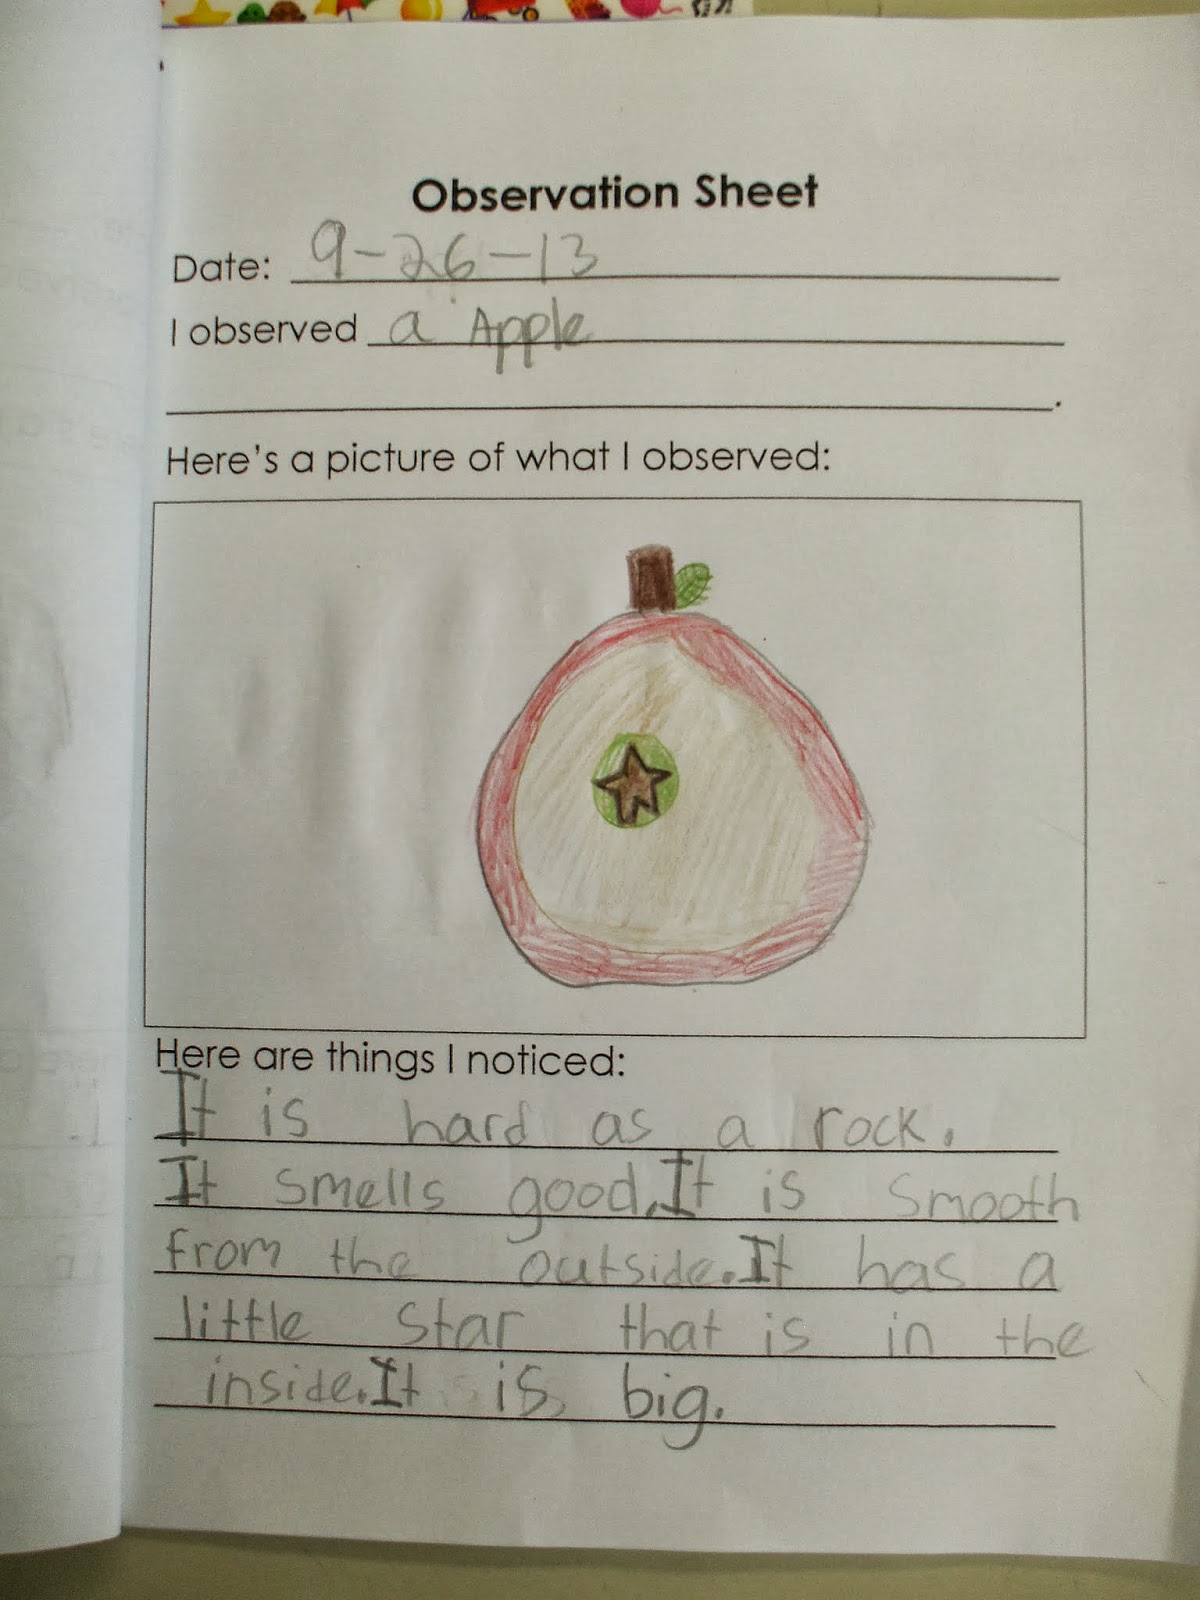 Observation Sheet
Date: 9-26-13
I observed a Apple
.
Here's a picture of what I observed:
Here are things I noticed:
It is hard as a rock.
It smells good. It is smooth
from the outside. It has a
little star that is in the
inside. It is big.